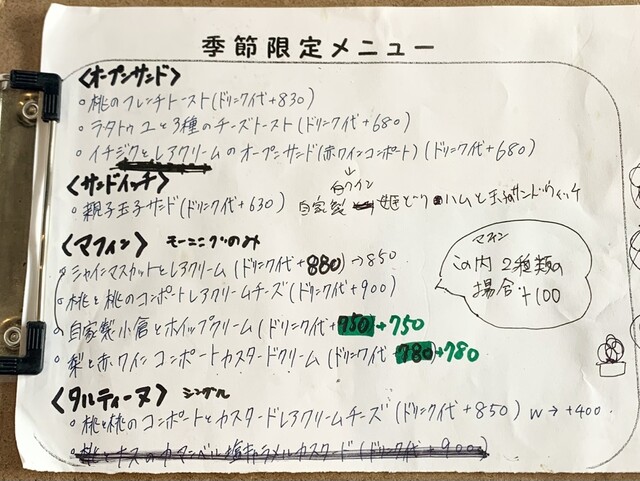 季節限定メニュー
<オープンサンド>
○ 桃のフレンチトースト(ドリンク代+830)
○ ラタトゥユと3種のチーズトースト(ドリンク代+680)
○ イチジクとレアクリームのオープンサンド(赤ワインコンポート)(ドリンク代+680)
↓
白ワイン
<サンドイッチ>
○ 親子玉子サンド(ドリンク代+630) 自家製 姫どりハムと玉子サンドウィッチ
<マフィン> モーニングのみ
シャインマスカットとレアクリーム(ドリンク代+880)→850
桃と桃のコンポートレアクリームチーズ(ドリンク代+900)
○ 自家製小倉とホイップクリーム(ドリンク代+750)+750
○ 梨と赤ワインコンポートカスタードクリーム(ドリンク代+780)+780
マフィン
この内2種類の
場合+100
<タルティーヌ> シングル
○ 桃と桃のコンポートとカスタードレアクリームチーズ(ドリンク代+850) W→+400